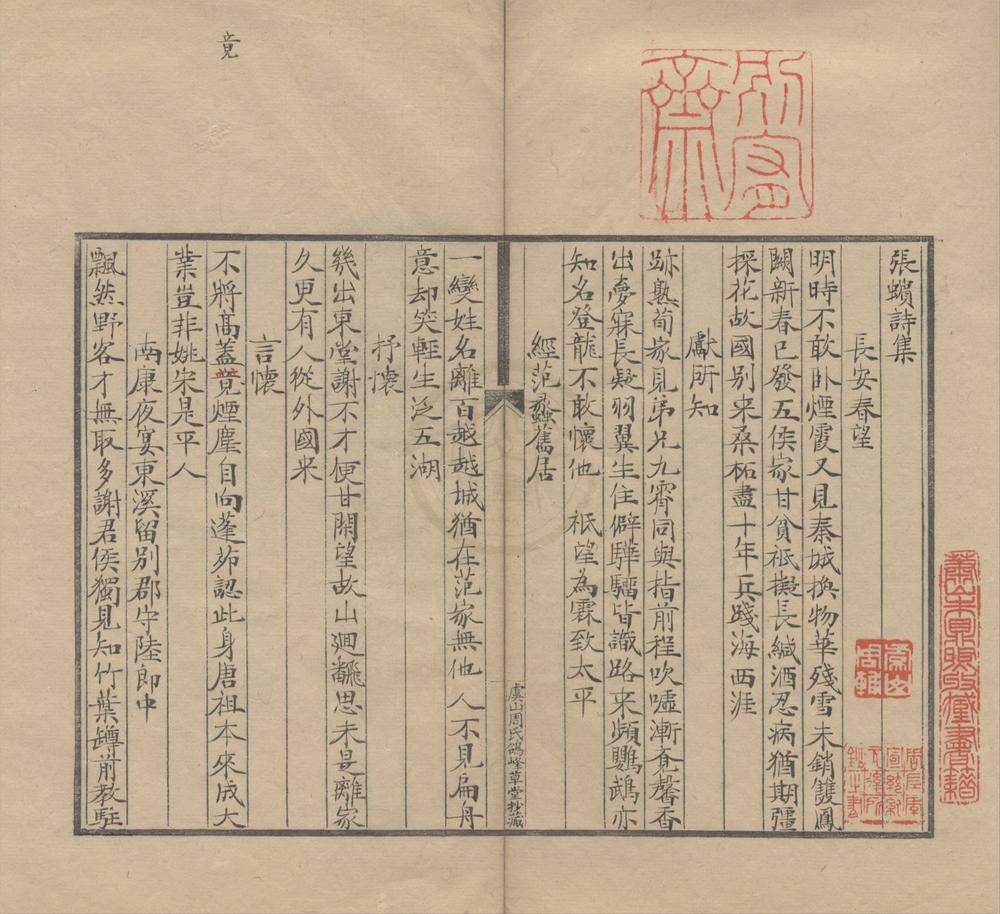 張蠙詩集
長安春望
明時不敢卧煙霞又見秦城換物華殘雪未銷雙鳳
闕新春已發五侯家甘貧祇擬長緘酒忍病猶期彊
採花故國別来桑柘盡十年兵踐海西涯
獻所知
跡熟荀家見弟兄九霄同與指前程吹噓漸覔馨香
出夢寐長疑羽翼生住僻驊騮皆識路来頻鸚鵡亦
知名登龍不敢懷他 祇望為霖致太平
經范蠡舊居
一變姓名離百越越城猶在范家無他人不見扁舟
意却笑輕生泛五湖
抒懷
幾出東堂謝不才便甘閑望故山廻翻思未是離家
久更有人從外國来
言懷
不將高蓋竟煙塵自向蓬茆認此身唐祖本來成大
業豈非姚宋是平人
南康夜宴東溪留別郡守陸郎中
飄然野客才無取多謝君侯獨見知竹葉罇前教駐
虞山周氏鴿峰草堂抄藏
竟